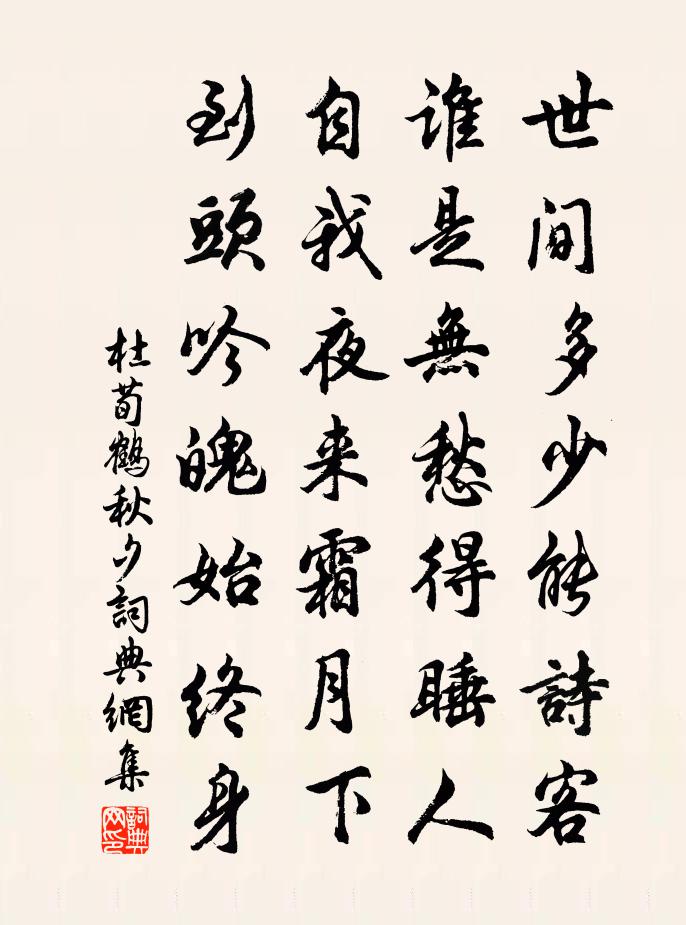 世間多少能詩客
誰是無愁得睡人
自我夜来霜月下
到頭吟魄始終身
杜荀鶴秋夕詞典網集
詞典
网印